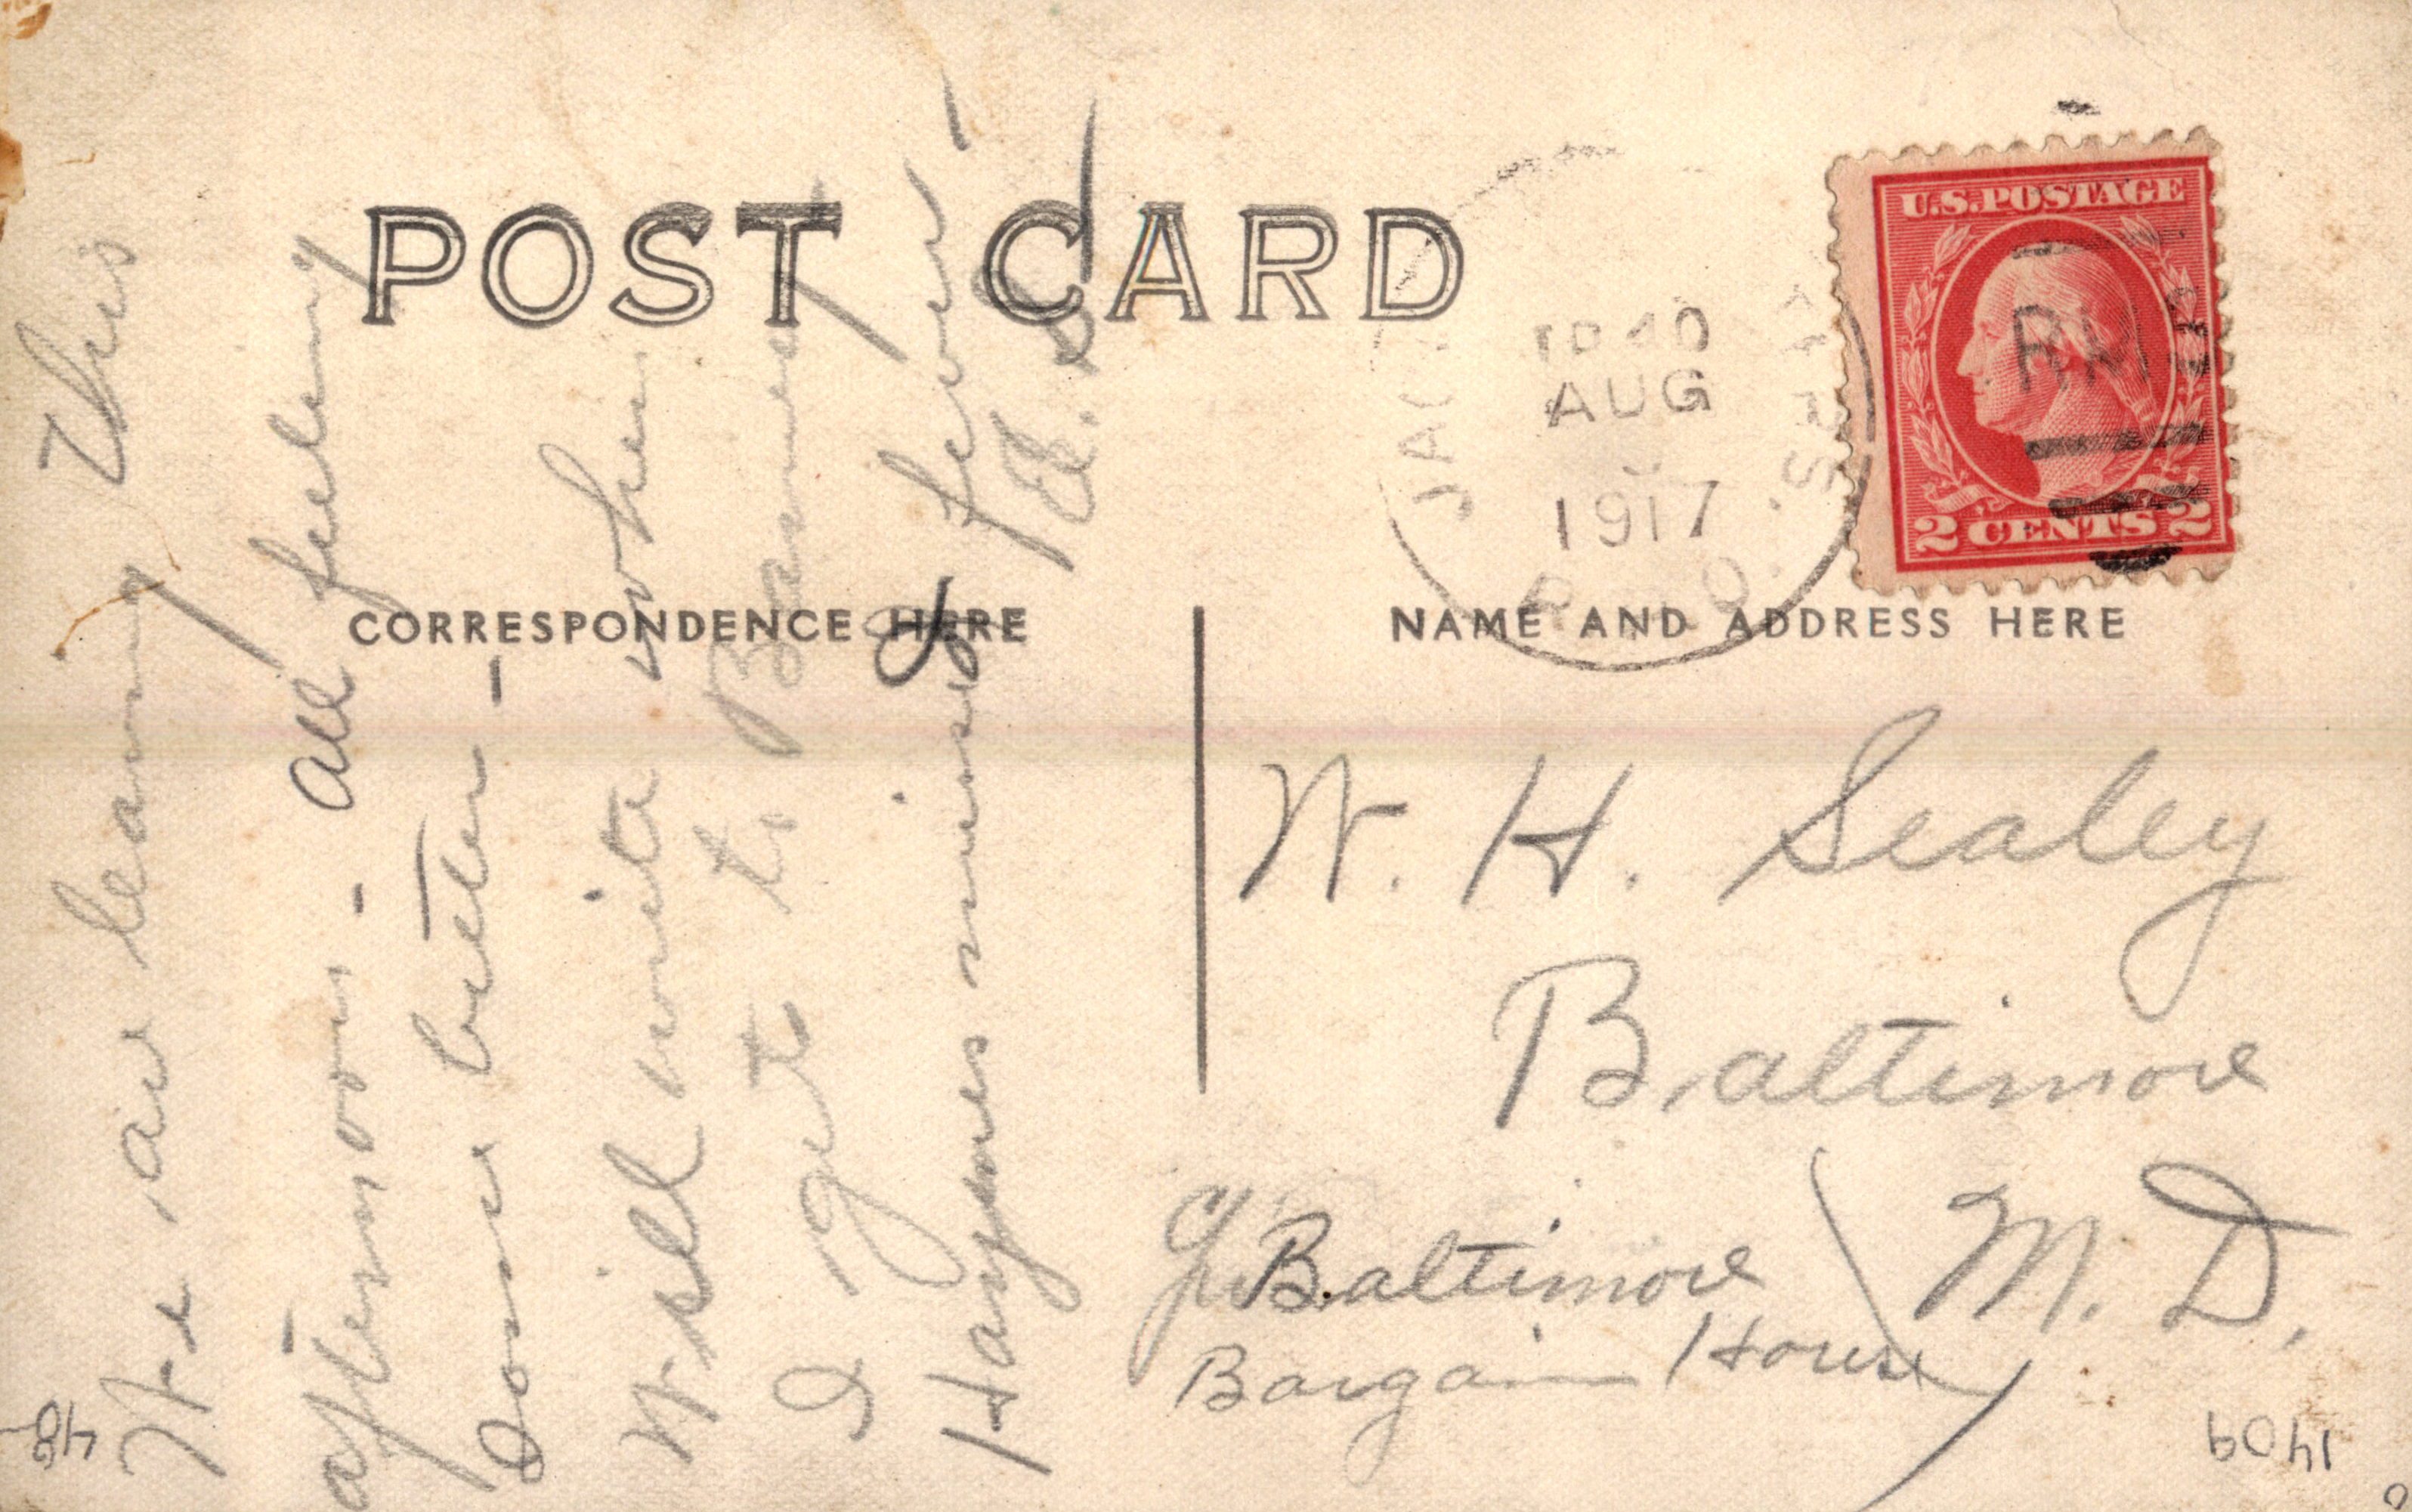 POST CARD
CORRESPONDENCE HERE
NAME AND ADDRESS HERE
U.S. POSTAGE
2 CENTS 2
RMS
AUG
1917
We are leaving this
afternoon - all feeling
some better -
Will write when
I get to
Haynes missing
fever
W. H. Sealey
Baltimore
M. D.
Baltimore
Bargain House
48
1409